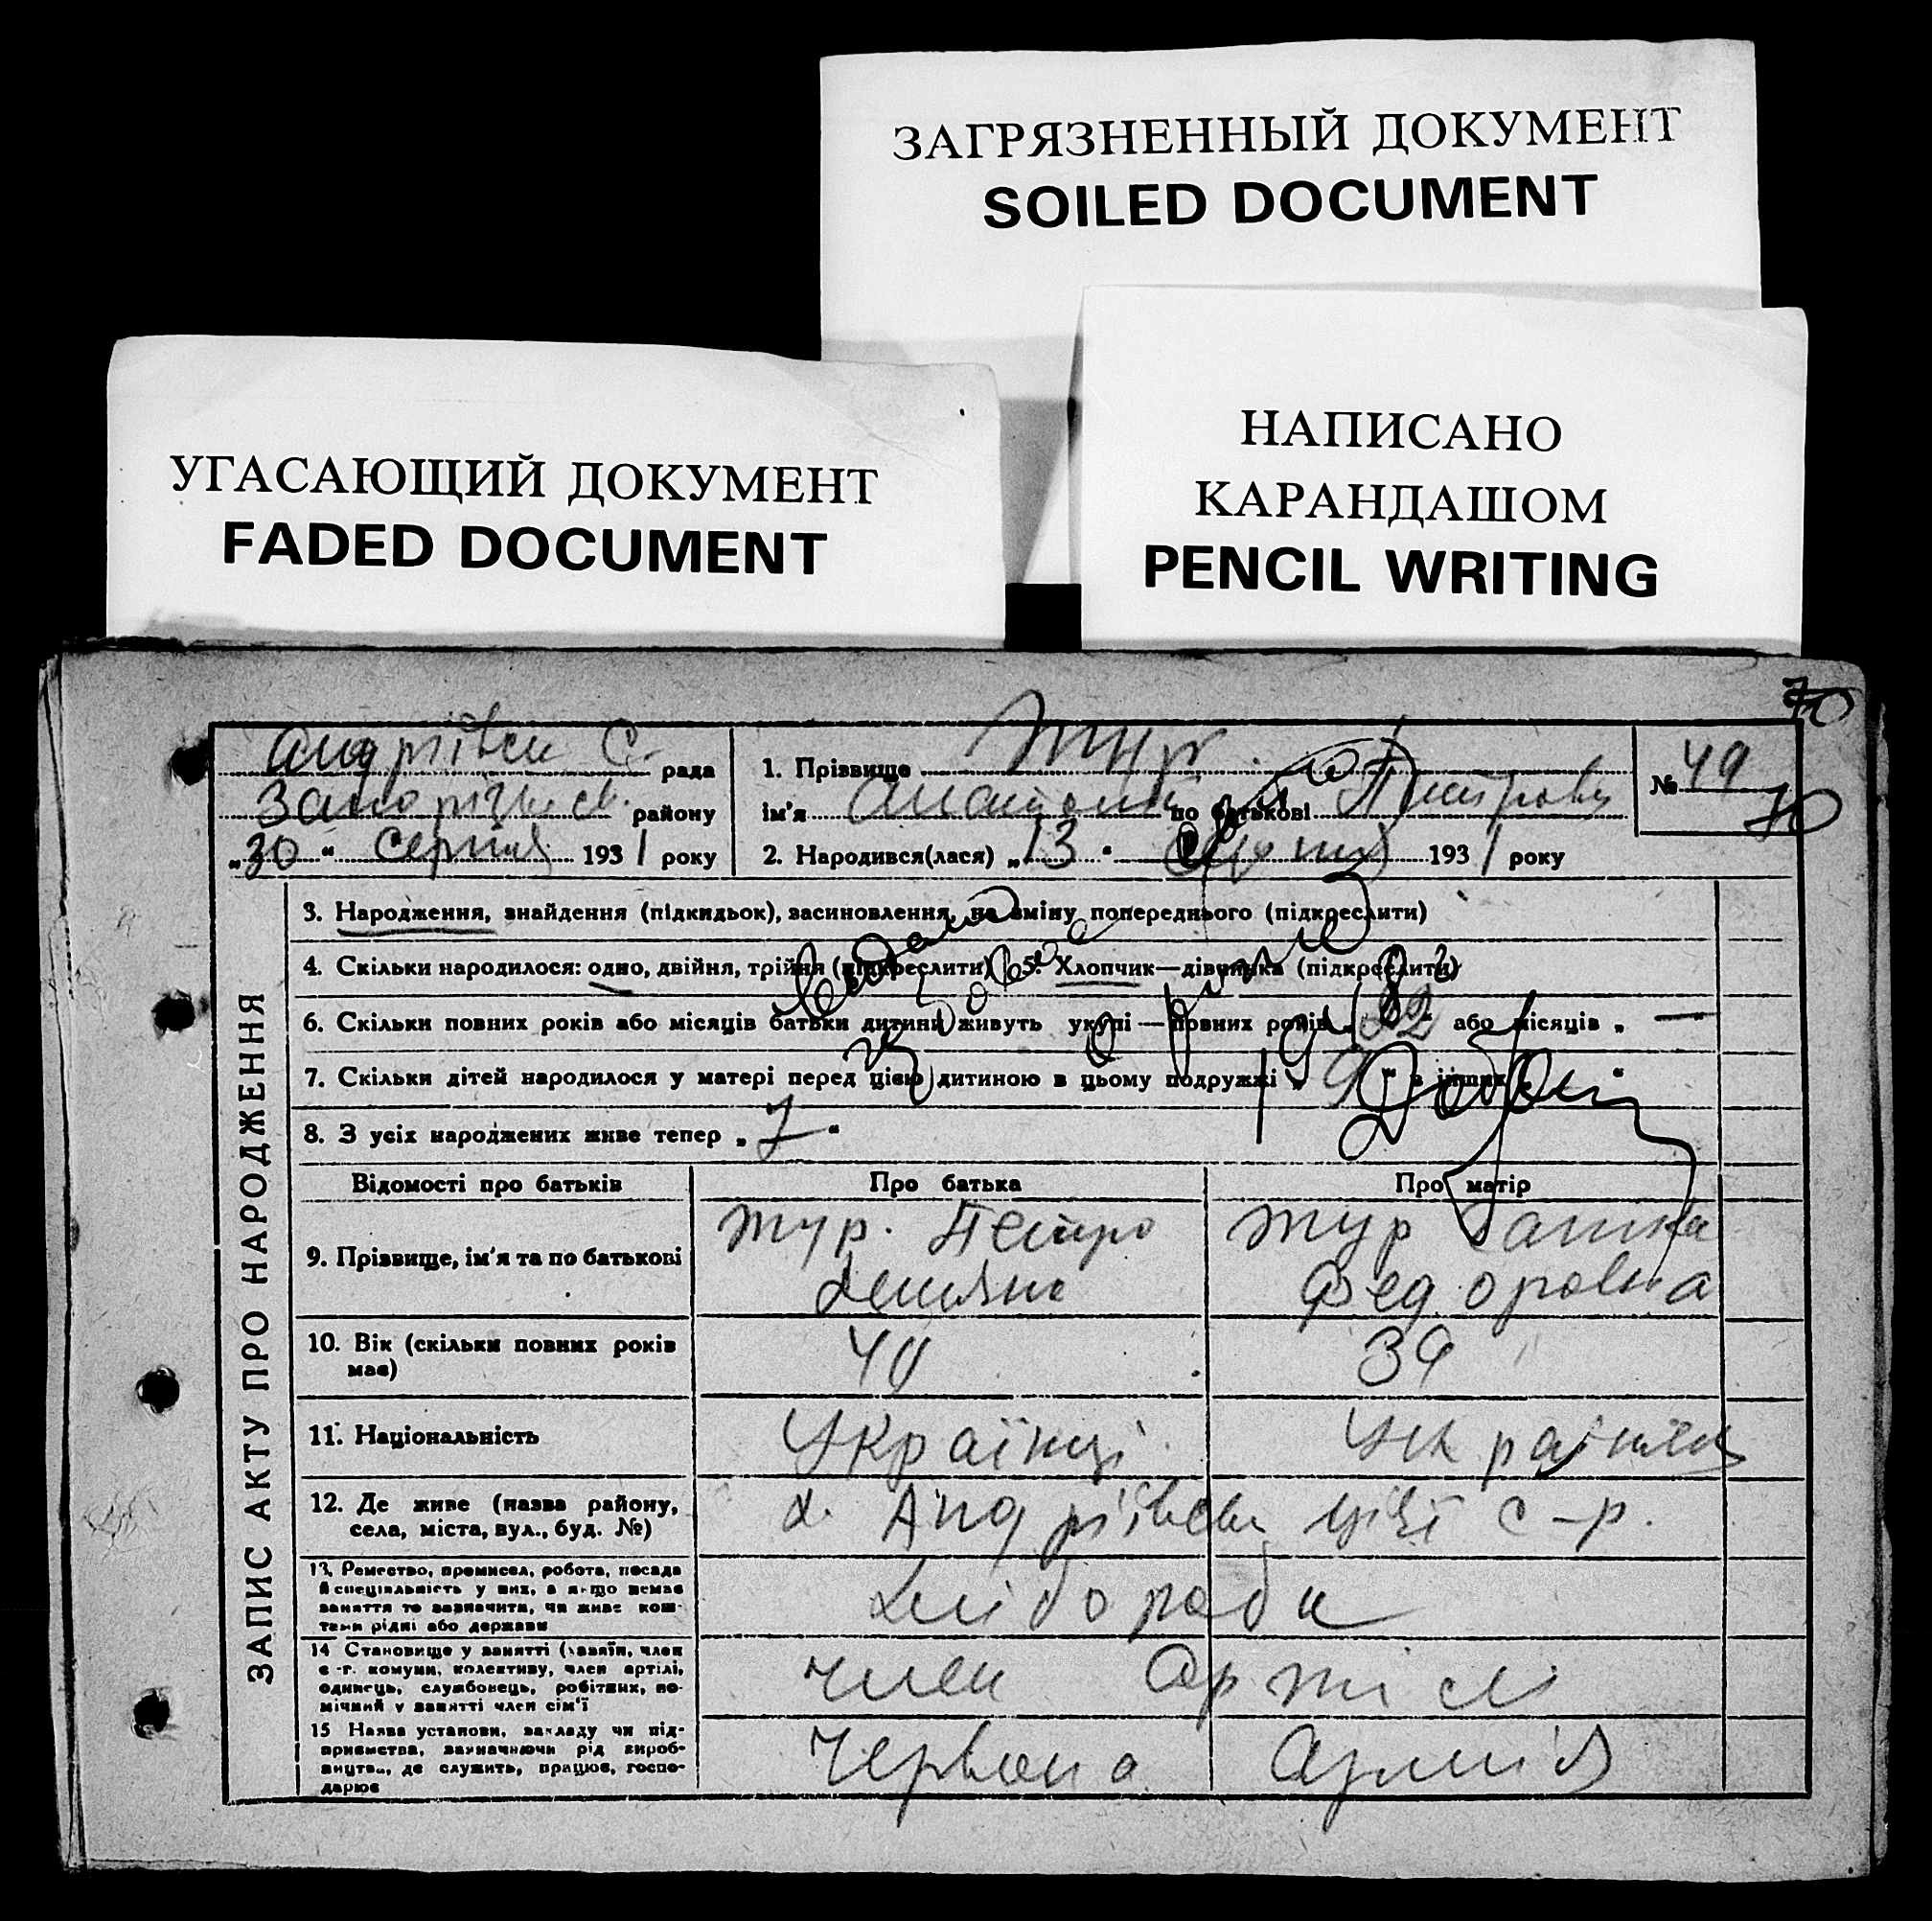 ЗАГРЯЗНЕННЫЙ ДОКУМЕНТ
SOILED DOCUMENT
УГАСАЮЩИЙ ДОКУМЕНТ
FADED DOCUMENT
НАПИСАНО
КАРАНДАШОМ
PENCIL WRITING
70
С. рада
району
„30“ Серпня 1931 року
1. Прізвище Тур
ім'я Анатолій по батькові Петрович
2. Народився(лася) „13“ Серпня 1931 року
№ 49
70
ЗАПИС АКТУ ПРО НАРОДЖЕННЯ
3. Народження, знайдення (підкидьок), засиновлення, на зміну попереднього (підкреслити)
4. Скільки народилося: одно, двійня, трійня (підкреслити) 5. Хлопчик—дівчинка (підкреслити)
6. Скільки повних років або місяців батьки дитини живуть укупі — повних років „22“ або місяців „—“
7. Скільки дітей народилося у матері перед цією дитиною в цьому подружжі „9“ в інших
8. З усіх народжених живе тепер „7“
Відомості про батьків Про батька Про матір
9. Прізвище, ім'я та по батькові
Тур Петро
Тур
Федоровна
10. Вік (скільки повних років має)
40 39
11. Національність
Українці
12. Де живе (назва району, села, міста, вул., буд. №)
с-р.
13. Ремество, промисел, робота, посада
й спеціяльність у них, а якщо немає
заняття то зазначити, чи живе кош-
тами рідні або держави
Хлібороби
14 Становище у занятті (хазяїн, член
с.-г. комуни, колективу, член артілі,
одинець, службовець, робітник, по-
мічний у занятті член сім'ї
член Артілі
15 Назва установи, закладу чи під-
приємства, зазначаючи рід вироб-
ництва, де служить, працює, госпо-
дарює
Червона Армія